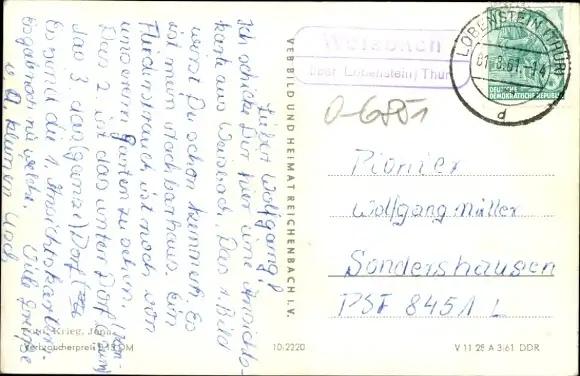 Lieber Wolfgang!
Ich schicke Dir hier eine Ansichts-
karte aus Weisbach. Das 1. Bild
wirst Du schon kennen. Es
ist mein Nachbarhaus. Ein
Fliederstrauch ist noch von
unserem Garten zu sehen.
Das 2. ist das unter Dorf
das 3 das (ganze) Dorf
Es sind die 1. Ansichtskarten.
Es gab noch nie welche. Viele Grüße
Foto: Krieg, Jena
Verbraucherpreis 0,15 DM
VEB BILD UND HEIMAT REICHENBACH I. V.
10/2220
Weisbach
über Lobenstein/Thür
LOBENSTEIN (THÜR)
d
DEUTSCHE
DEMOKRATISCHE REPUBLIK
O-6851
Pionier
Wolfgang Müller
Sondershausen
PSF 8451 L
V 11 28 A 3/61 DDR